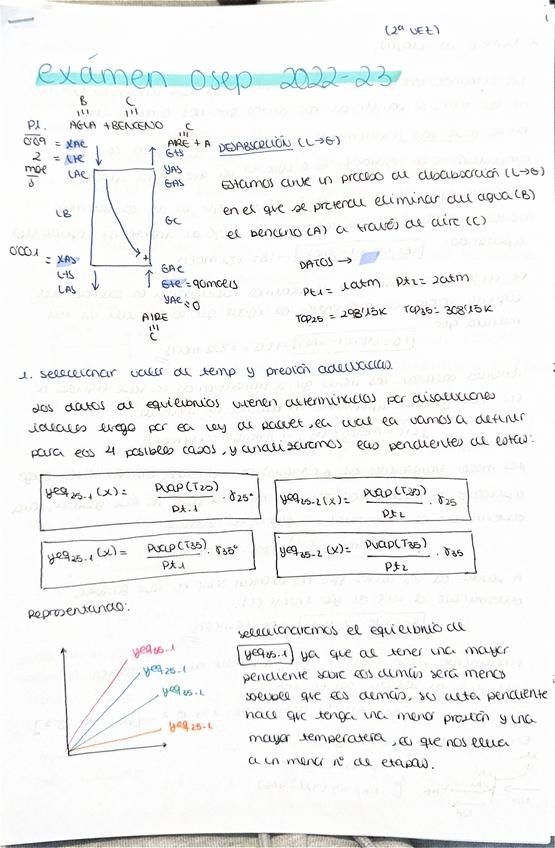 (2ª VEZ)
exámen osep 2022-23
B C
P1. AGUA + BENCENO
C
AIRE + A
DESABSORCIÓN (L→G)
0'09 = XAE
2 = LTE
mol/s LAE
GTS
YAS
GAS
LB
GC
0'001 = XAS
LTS
LAS
GAE
GTE = 90mol/s
YAE = 0
AIRE
C
Estamos ante un proceso de desabsorción (L→G)
en el que se pretende eliminar del agua (B)
el benceno (A) a través de aire (C)
DATOS →
Pt1 = 1atm Pt2 = 2atm
TOP25 = 298'15K TOP35 = 308'15K
1. Seleccionar valor de temp y presión adecuados.
Los datos de equilibrios vienen determinados por disoluciones
ideales luego por la ley de Raoult, la cual la vamos a definir
para los 4 posibles casos, y analizaremos las pendientes de estas:
yeq25-1(x) = Pvap(T25) / Pt.1 · γ25°
yeq25-2(x) = Pvap(T25) / Pt2 · γ25
yeq35-1(x) = Pvap(T35) / Pt.1 · γ35°
yeq35-2(x) = Pvap(T35) / Pt2 · γ35
Representando:
yeq35-1
yeq25-1
yeq35-2
yeq25-2
seleccionaremos el equilibrio de
yeq35-1 ya que al tener una mayor
pendiente sobre los demás será menos
soluble que los demás, su alta pendiente
hace que tenga una menor presión y una
mayor temperatura, lo que nos lleva
a un menor nº de etapas.